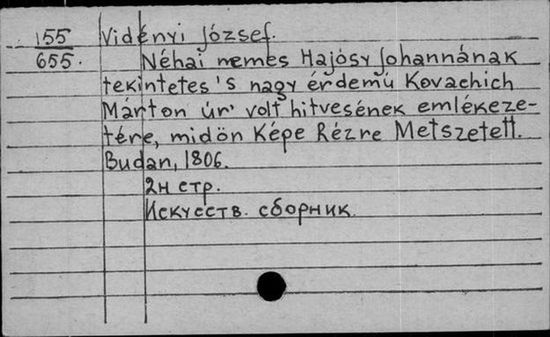 155 Vidényi József.
655. Néhai nemes Hajósy Johannának
tekintetes 's nagy érdemű Kovachich
Márton úr' volt hitvesének emlékeze-
tére, midön Képe Rézre Metszetett.
Budan, 1806.
2н стр.
Искусств. сборник.